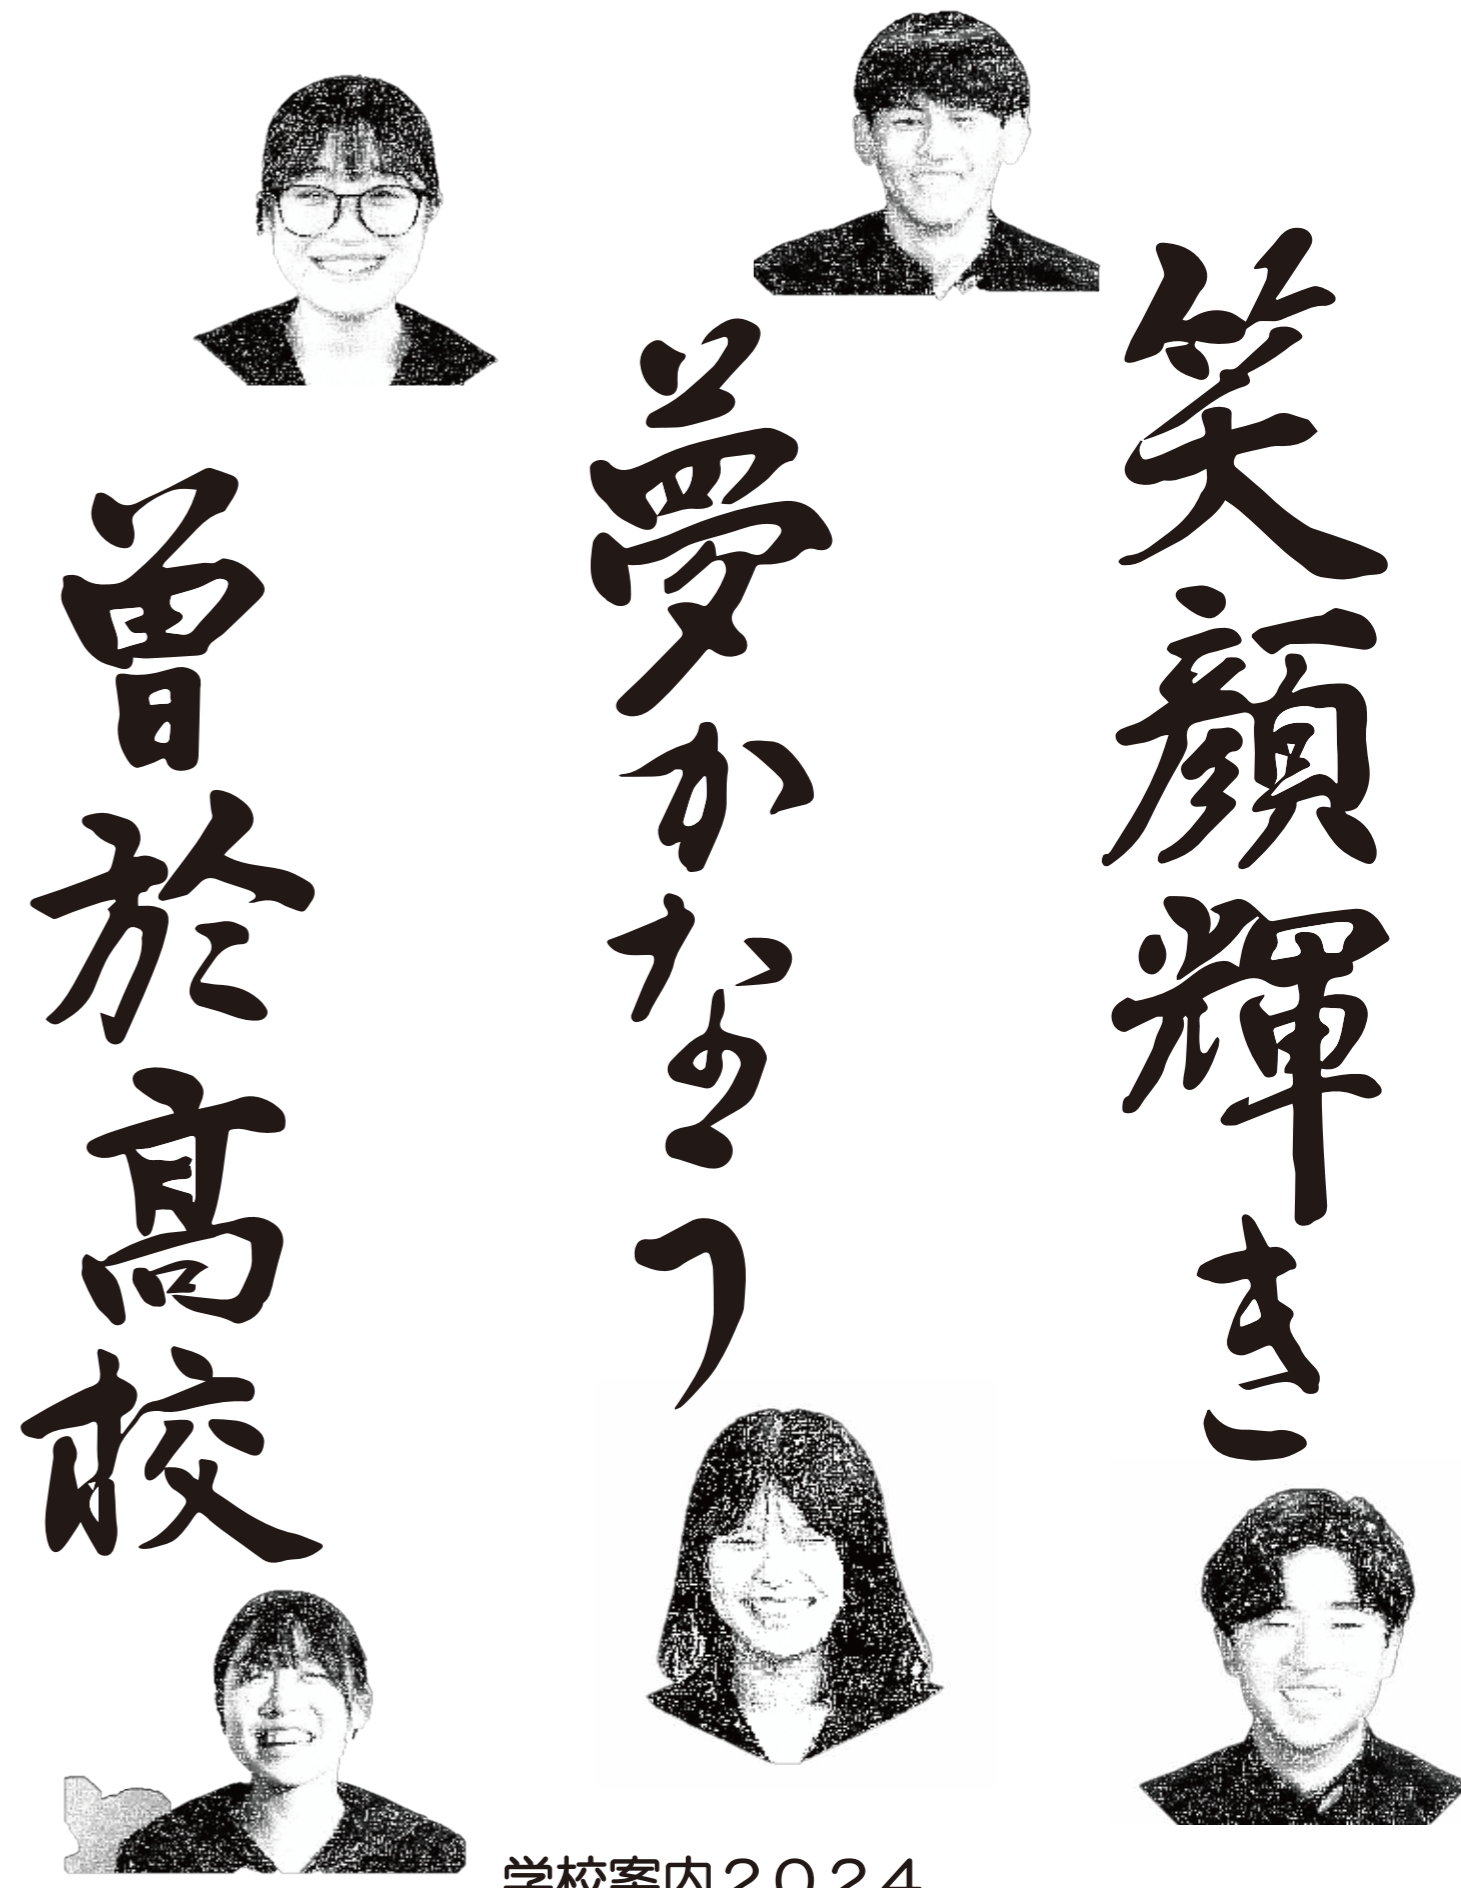 笑顔輝き
夢かなう
曽於高校
学校案内２０２４